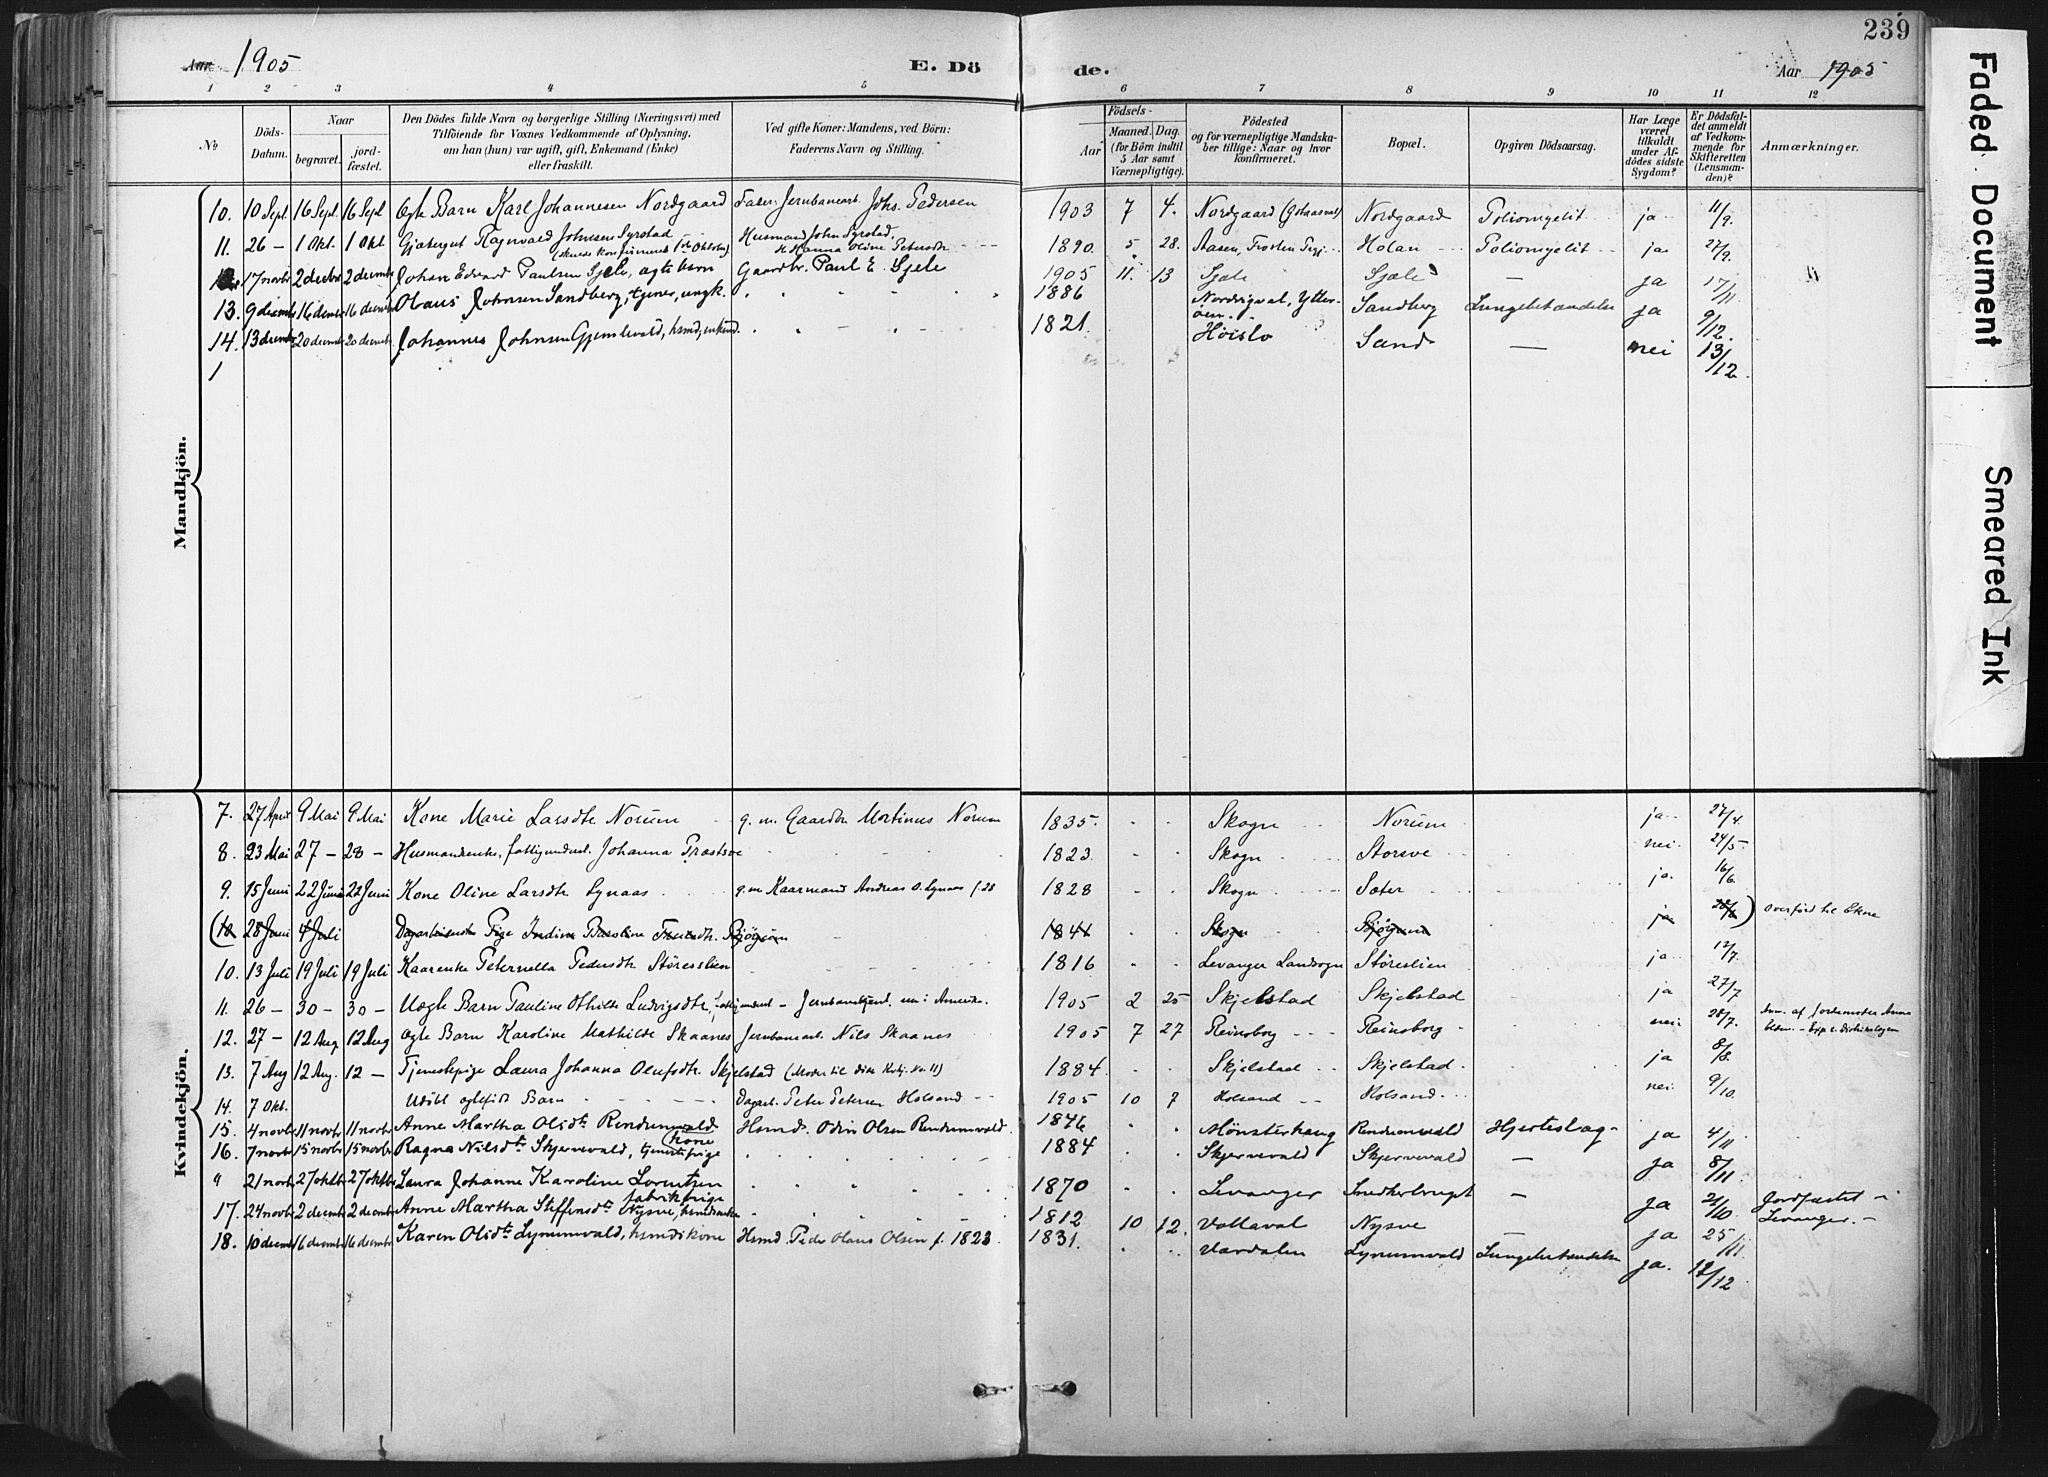 239
Aar 1905 E. Dö de. Aar 1905
1 2 3 4 5 6 7 8 9 10 11 12
№
Döds-Datum.
Naar
begravet.
jord-fæstet.
Den Dödes fulde Navn og borgerlige Stilling (Næringsvei) med
Tilföiende for Voxnes Vedkommende af Oplysning,
om han (hun) var ugift, gift, Enkemand (Enke)
eller fraskilt.
Ved gifte Koner: Mandens, ved Börn:
Faderens Navn og Stilling.
Födsels-
Aar
Maaned. Dag.
(for Börn indtil
5 Aar samt
Værnepligtige).
Födested
og for værnepligtige Mandska-
ber tillige: Naar og hvor
konfirmeret.
Bopæl.
Opgiven Dödsaarsag.
Har Læge
været
tilkaldt
under Af-
dödes sidste
Sygdom?
Er Dödsfal-
det anmeldt
af Vedkom-
mende for
Skifteretten
(Lensman-
den)?
Anmærkninger.
Mandkjön.
10. 10 Sept. 16 Sept. 16 Sept Ægte Barn Karl Johannesen Nordgaard Fader: Jernbanearb. Johs. Pedersen 1903 7 4. Nordgaard Nordgaard Poliomyelit ja 11/9.
11. 26 — 1 Okt. 1 Okt Gjætergut Ragnvald Johnsen Husmand John 1890. 5 28. Aasen, Holan Poliomyelit ja 27/9.
Hanna Oline Petersdtr
12. 17 novbr 2 decbr 2 decembr Johan Edvard Paulsen Sjele, ægte barn Gaardbr. Paul E. Sjele 1905 11. 13 Sjele Sjele — ja 17/11.
13. 9 decembr 16 decembr 16 decembr Olaus Johnsen Sandberg, tjener, ungk. 1886 Ytterøen. Sandberg Lungebetændelse ja 9/12.
14. 13 decembr 20 decembr 20 decembr Johannes Johnsen Gjemblevald, hsmd, enkemd. 1821. Høislo Sand — nei 13/12.
1
Kvindekjön.
7. 27 April 9 Mai 9 Mai Kone Marie Larsdtr Norum g. m. Gaardbr Mortinus Norum 1835. Skogn Norum ja 27/4.
8. 23 Mai 27 — 28 — Husmandsenke, fattigunderst. Johanna Præstsve 1823. Skogn Storsve nei 24/5.
9. 15 Juni 22 Juni 22 Juni Kone Oline Larsdtr Lynaas g. m. Kaarmand Andreas O. Lynaas f. 28 1828 Skogn Sæter ja. 16/6.
(10 28 Juni 4 Juli Pige Skogn ja 28/6) overført til Ekne
10. 13 Juli 19 Juli 19 Juli Kaarenke Peternella Pedersdtr Støresslien 1816 Levanger Landsogn Støreslien ja. 17/7.
11. 26 — 30 — 30 — Uægte Barn Pauline Othilde Ludvigsdtr, Jernbanearbeid. nu i Amerika. 1905 2 25 Skjelstad Skjelstad ja 27/7
12. 27 — 12 Aug. 12 Aug Ægte Barn Karoline Mathilde Skaanes Jernbanearb. Nils Skaanes 1905 7 27 Reinsborg Reinsborg nei 28/7. Anm. af Jordemoder Anna
13. 7 Aug 12 Aug. 12 — Tjenestepige Laura Johanna Olufsdtr. Skjelstad (Moder til døde Kvkj. No. 11) 1884. Skjelstad Skjelstad. ja 8/8.
14. 7 Okt. Udöbt ægtefødt Barn Dagarb. Peter Petersen Holsand 1905 10 7 Holsand Holsand nei 9/10.
15. 4 novbr 11 novbr 11 novbr Anne Martha Olsdtr. Rendumvald kone Hsmd. Odin Olsen Rendumvald. 1846 Mönsterhaug Rendumvald Hjerteslag ja 4/11
16. 7 novbr 15 novbr 15 novbr Ragna Nilsdtr. Skjervevald, tjenestepige 1884 Skjervevald Skjervevald — ja 8/11.
" 21 novbr 27 oktbr 27 oktbr Laura Johanne Karoline Lorentzen fabrikpige 1870 Levanger — ja 21/10 Jordfæstet i Levanger. —
17. 24 novbr 2 decembr 2 decembr Anne Martha Steffensdtr. Nysve, hsmdsenke 1812 10 12. Vollaval Nysve — ja 25/11.
18. 10 decembr 16 decembr 16 decembr Karen Olsdtr. Lynumvald, hsmdskone Hsmd. Peder Olaus Olsen f. 1823. 1831. Værdalen Lynumvald Lungebetændelse ja. 12/12
Faded Document
Smeared Ink